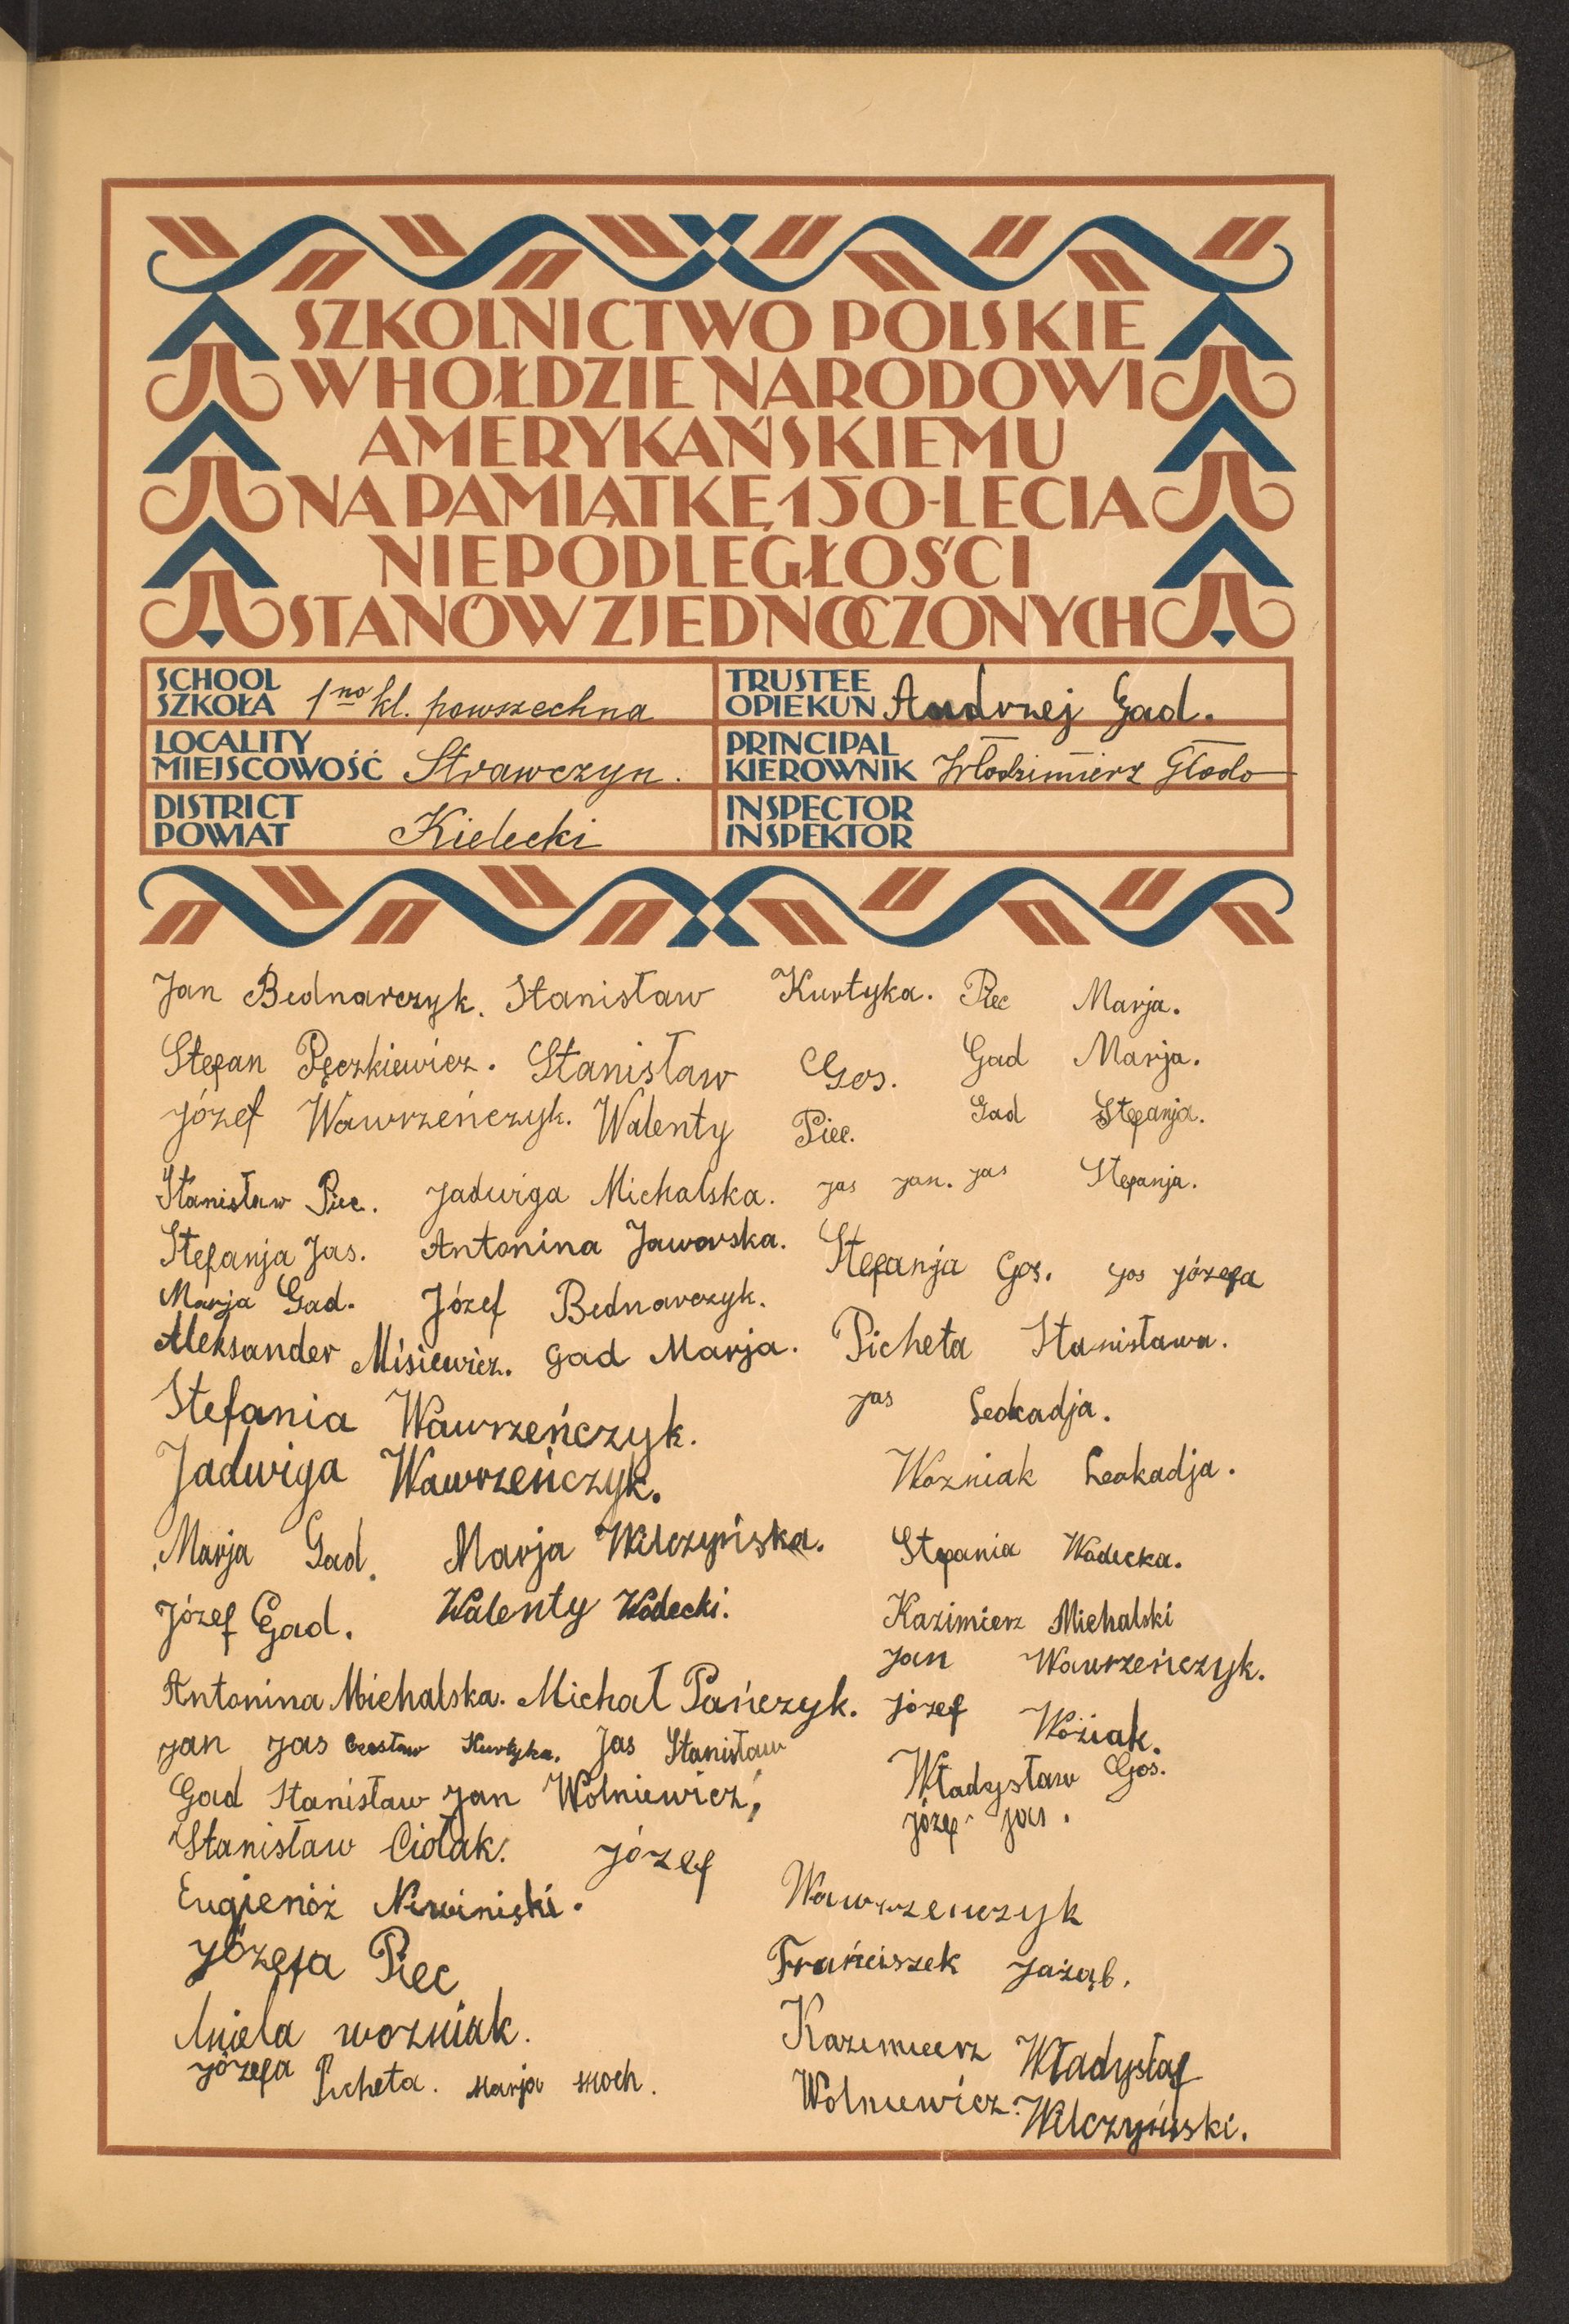 SZKOLNICTWO POLSKIE
W HOŁDZIE NARODOWI
AMERYKAŃSKIEMU
NA PAMIĄTKĘ 150-LECIA
NIEPODLEGŁOŚCI
STANÓW ZJEDNOCZONYCH
SCHOOL
SZKOŁA 1no kl. powszechna
TRUSTEE
OPIEKUN Andrzej Gad.
LOCALITY
MIEJSCOWOŚĆ Strawczyn.
PRINCIPAL
KIEROWNIK Włodzimierz Głodo
DISTRICT
POWIAT Kielecki
INSPECTOR
INSPEKTOR
Jan Bednarczyk. Stanisław Kurtyka. Piec Marja.
Stefan Pęczkiewicz. Stanisław Gos. Gad Marja.
Józef Wawrzeńczyk. Walenty Piec. Gad Stefanja.
Stanisław Piec. Jadwiga Michalska. Jas Jan. Jas Stefanja.
Stefanja Jas. Antonina Jaworska. Stefanja Gos. Gos Józefa
Marja Gad. Józef Bednarczyk.
Aleksander Misiewicz. Gad Marja. Picheta Stanisława.
Stefania Wawrzeńczyk. Jas Leokadja.
Jadwiga Wawrzeńczyk. Wozniak Leokadja.
Marja Gad. Marja Wilczyńska. Stefania Wodecka.
Józef Gad. Walenty Wodecki. Kazimierz Michalski
Jan Wawrzeńczyk.
Antonina Michalska. Michał Pańczyk. Józef Woźiak.
Jan Jas Czesław Kurtyka. Jas Stanisław
Gad Stanisław Jan Wolniewicz, Władysław Gos.
Józef Jas.
Stanisław Ciołak. Józef Wawrzenczyk
Eugienóż Niwiniski.
Józefa Piec Frańciszek Jaząb.
Aniela wozniak. Kazimierz Wolniewicz.
Władysłaf Wilczyński.
Józefa Picheta. Marja Moch.